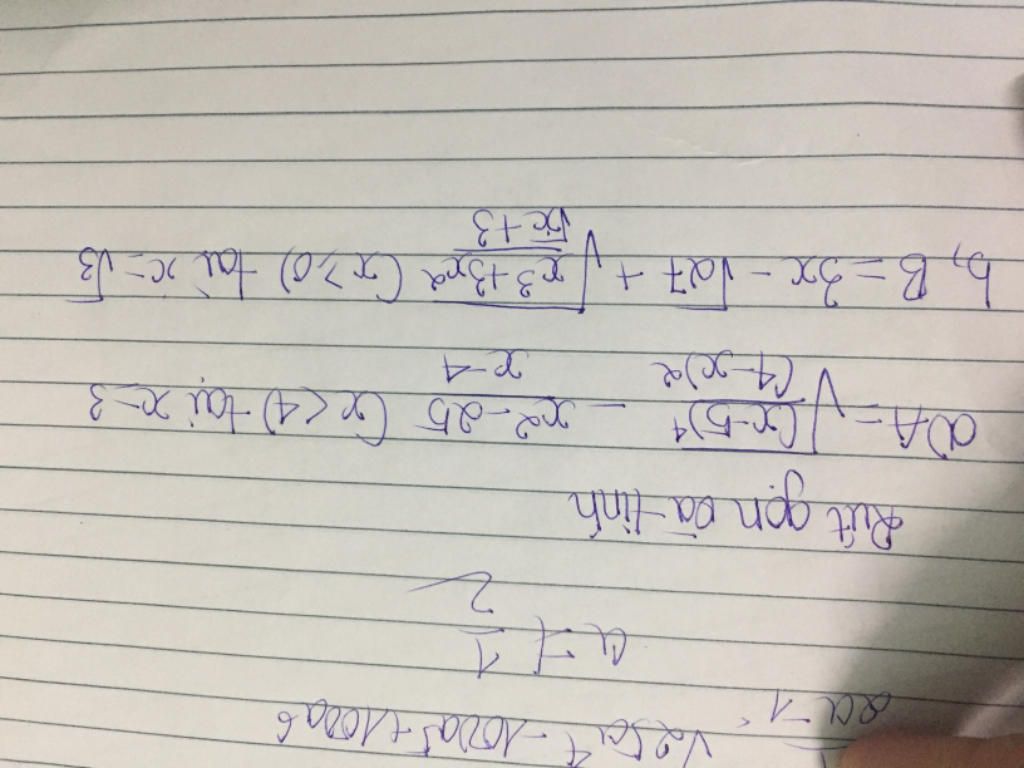 √25a⁴ - 100a⁵ + 100a⁶
2a - 1
a ≠ 1/2
Rút gọn và tính
a) A = √((x-5)⁴/(4-x)²) - (x²-25)/(x-4) (x<4) tại x=3
b, B = 3x - √27 + √((x³+3x²)/(√x+3)) (x≥0) tại x=√3